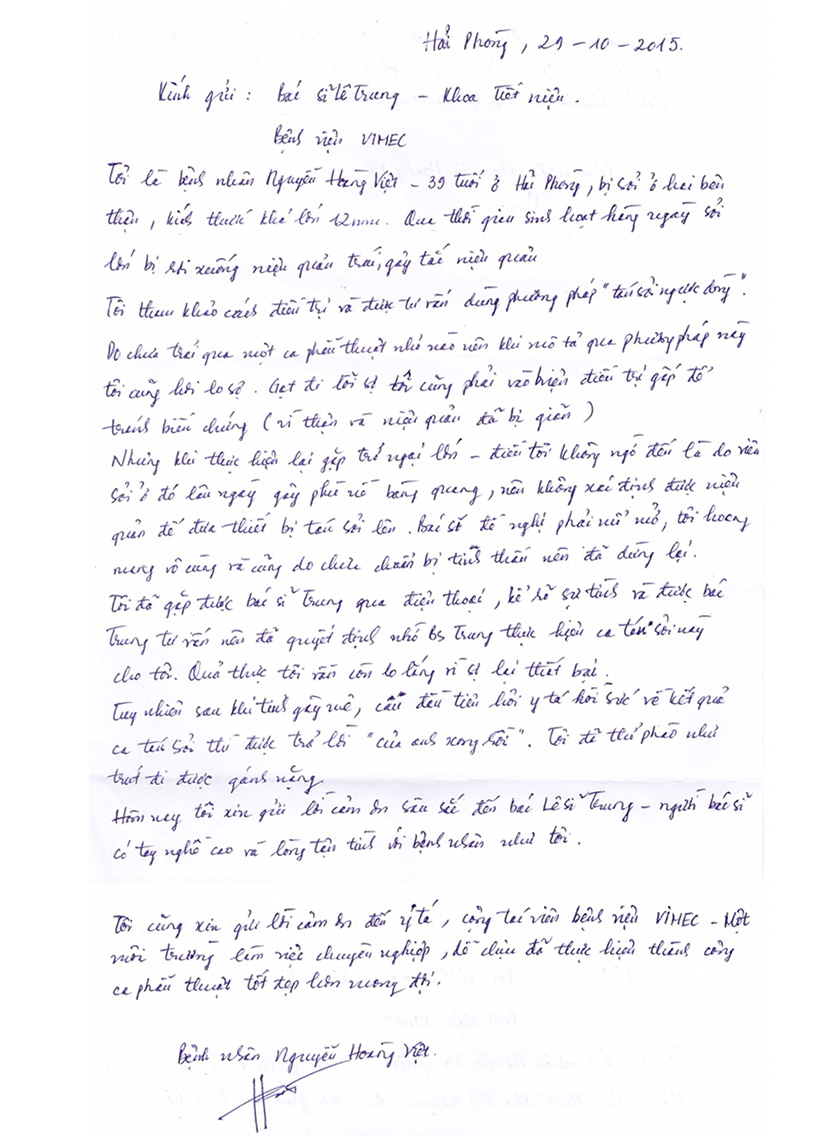 Hải Phòng, 29-10-2015.
Kính gửi: Bác sĩ Lê Trung - Khoa Tiết niệu.
Bệnh viện VIMEC
Tôi là bệnh nhân Nguyễn Hoàng Việt - 39 tuổi ở Hải Phòng, bị sỏi ở hai bên
thận, kích thước khá lớn 12mm. Qua thời gian sinh hoạt hàng ngày sỏi
lớn bị rơi xuống niệu quản trái, gây tắc niệu quản
Tôi tham khảo cách điều trị và được tư vấn dùng phương pháp "tán sỏi ngược dòng".
Do chưa trải qua một ca phẫu thuật nhỏ nào nên khi mô tả qua phương pháp này
tôi cũng hơi lo sợ. Gạt đi lỗi sợ tôi cũng phải vào viện điều trị gấp để
tránh biến chứng (vì thận và niệu quản đã bị giãn)
Nhưng khi thực hiện lại gặp trở ngại lớn - điều tôi không ngờ đến là do viên
sỏi ở đó lâu ngày gây phù nề bàng quang, nên không xác định được niệu
quản để đưa thiết bị tán sỏi lên. Bác sĩ đề nghị phải mổ mở, tôi hoang
mang vô cùng và cũng do chưa chuẩn bị tinh thần nên đã dừng lại.
Tôi đã gặp được bác sĩ Trung qua điện thoại, kể rõ sự tình và được bác
Trung tư vấn nên đã quyết định nhờ Bs Trung thực hiện ca tán sỏi này
cho tôi. Quả thực tôi vẫn còn lo lắng vì sợ lại thất bại.
Tuy nhiên sau khi tỉnh gây mê, câu đầu tiên hỏi y tá hồi sức về kết quả
ca tán sỏi thì được trả lời "của anh xong rồi". Tôi đã thở phào như
trút đi được gánh nặng.
Hôm nay tôi xin gửi lời cảm ơn sâu sắc đến bác Lê sĩ Trung - người bác sĩ
có tay nghề cao và lòng tận tình với bệnh nhân như tôi.
Tôi cũng xin gửi lời cảm ơn đến y tá, cộng tác viên bệnh viện VIMEC - Một
môi trường làm việc chuyên nghiệp, dễ chịu đã thực hiện thành công
ca phẫu thuật tốt đẹp hơn mong đợi.
Bệnh nhân Nguyễn Hoàng Việt.